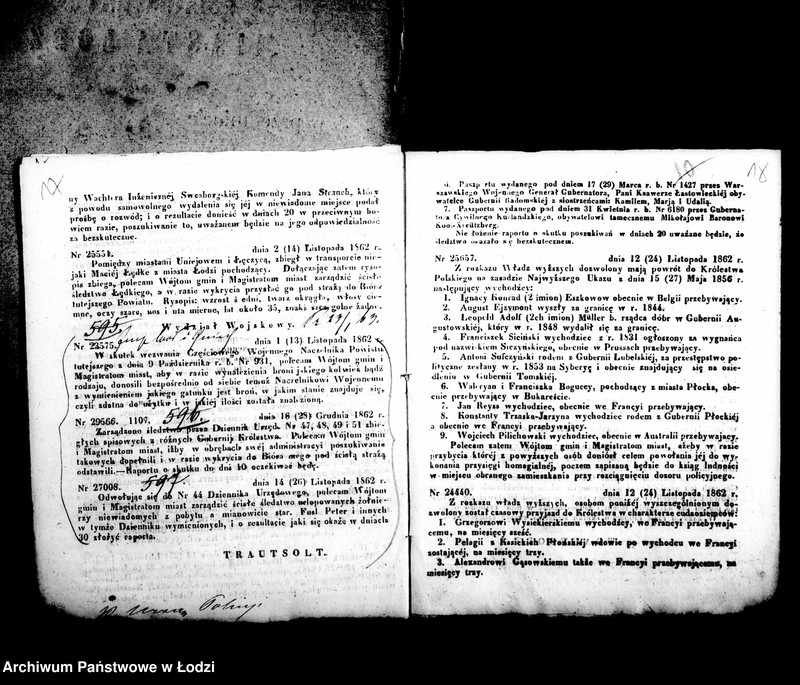 17
ny Wachtera Inżeniernéj Sweaborgskiéj Komendy Jana Strauch, który
z powodu samowolnego wydalenia się jéj w niewiadome miejsce podał
prośbę o rozwód; i o rezultacie donieść w dniach 20 w przeciwnym bo-
wiem razie, poszukiwanie to, uważanem będzie na jego odpowiedzialność
za bezskuteczne.
Nr 25551. dnia 2 (14) Listopada 1862 r.
Pomiędzy miastami Uniejowem i Łęczycą, zbiegł w transporcie nie-
jaki Maciéj Łędke z miasta Łodzi pochodzący. Dołączając zatem ryso-
pis zbiega, polecam Wójtom gmin i Magistratom miast zarządzić ścisłe
śledztwo Łędkiego, a w razie wykrycia przysłać go pod strażą do Biura
tutejszego Powiatu. Rysopis: wzrost średni, twarz okrągła, włosy cie-
mne, oczy szare, nos i usta mierne, lat około 35, znaki szczególne żadne.
595. Wydział Wojskowy.
Nr 23575. dnia 1 (13) Listopada 1862 r.
W skutek wezwania Częściowego Wojennego Naczelnika Powiatu
tutejszego z dnia 9 Października r. b. Nr 931, polecam Wójtom gmin i
Magistratom miast, aby w razie wynalezienia broni jakiej kolwiek bądź
rodzaju, donosili bezpośrednio od siebie temuż Naczelnikowi Wojennemu
z wymienieniem jakiego gatunku jest broń, w jakim stanie znajduje się,
czyli zdatna do użytku i w jakiej ilości została znalezioną.
Nr 29666. 1107. 596. dnia 16 (28) Grudnia 1862 r.
Zarządzono śledztwo przez Dziennik Urzęd. Nr 47, 48, 49 i 51 zbie-
głych spisowych z różnych Gubernij Królestwa. Polecam Wójtom gmin
i Magistratom miast, iżby w obrębach swéj administracyi poszukiwanie
takowych dopełnili i w razie wykrycia do Biura mego pod ścisłą strażą
odstawili.—Raportu o skutku do dni 40 oczekiwać będę.
597.
Nr 27008. dnia 14 (26) Listopada 1862 r.
Odwołując się do Nr 44 Dziennika Urzędowego, polecam Wójtom
gmin i Magistratom miast zarządzić ścisłe śledztwo urlopowanych żołnie-
rzy niewiadomych z pobytu a mianowicie star. Fusl Peter i innych
w tymże Dzienniku wymienionych, i o rezultacie jaki się okaże w dniach
30 złożyć raporta.
TRAUTSOLT.
18
6. Paszportu wydanego pod dniem 17 (29) Marca r. b. Nr 1427 przez War-
szawskiego Wojennego Generał Gubernatora, Pani Ksawerze Łastowieckiej oby-
watelce Gubernii Radomskiej z siostrzeńcami: Kamilem, Marją i Udalią.
7. Paszportu wydanego pod dniem 31 Kwietnia r. b. Nr 6180 przez Guberna-
tora Cywilnego Kurlandzkiego, obywatelowi tamecznemu Mikołajowi Baronowi
Nie łożenie raportu o skutku poszukiwań w dniach 20 uważane będzie, że
śledztwo okazało się bezskutecznem.
Nr 25657. dnia 12 (24) Listopada 1862 r.
Z rozkazu Władz wyższych dozwolony mają powrót do Królestwa
Polskiego na zasadzie Najwyższego Ukazu z dnia 15 (27) Maja 1856 r.
następujący wychodźcy:
1. Ignacy Konrad (2 imion) Eszkowow obecnie w Belgii przebywający.
2. August Ejzymont wyszły za granicę w r. 1844.
3. Leopold Adolf (2ch imion) Müller b. rządca dóbr w Gubernii Au-
gustowskiéj, który w r. 1848 wydalił się za granicę.
4. Franciszek Siciński wychodźca z r. 1831 ogłoszony za wygnańca
pod nazwiskiem Siczyńskiego, obecnie w Prussach przebywający.
5. Antoni Sufczyński rodem z Gubernii Lubelskiej, za przestępstwo po-
lityczne zesłany w r. 1853 na Syberyę i obecnie znajdujący się na osie-
dleniu w Gubernii Tomskiéj.
6. Waleryan i Franciszka Boguccy, pochodzący z miasta Płocka, obe-
cnie przebywający w Bukareście.
7. Jan Reyss wychodźca, obecnie we Francyi przebywający.
8. Konstanty Trzaska-Jarzyna wychodźca rodem z Gubernii Płockiéj
a obecnie we Francyi przebywający.
9. Wojciech Pilichowski wychodźca, obecnie w Australii przebywający.
Polecam zatem Wójtom gmin i Magistratom miast, ażeby w razie
przybycia której z powyższych osób doniósł celem powołania jéj do wy-
konania przysięgi homagialnéj, poczem zapisaną będzie do ksiąg ludności
w miejscu obranego zamieszkania przy rozciągnięciu dozoru policyjnego.
Nr 24440. dnia 12 (24) Listopada 1862 r.
Z rozkazu władz wyższych, osobom poniżéj wyszczególnionym do-
zwolony został czasowy przyjazd do Królestwa w charakterze cudzoziemców:
1. Grzegorzowi Wysiekierskiemu wychodźcy, we Francyi przebywają-
cemu, na miesięcy sześć.
2. Pelagii z Kasickich Płońskiéj wdowie po wychodźcu we Francyi
zostającéj, na miesięcy trzy.
3. Alexandrowi Gąsowskiemu także we Francyi przebywającemu, na
miesięcy trzy.
Archiwum Państwowe w Łodzi